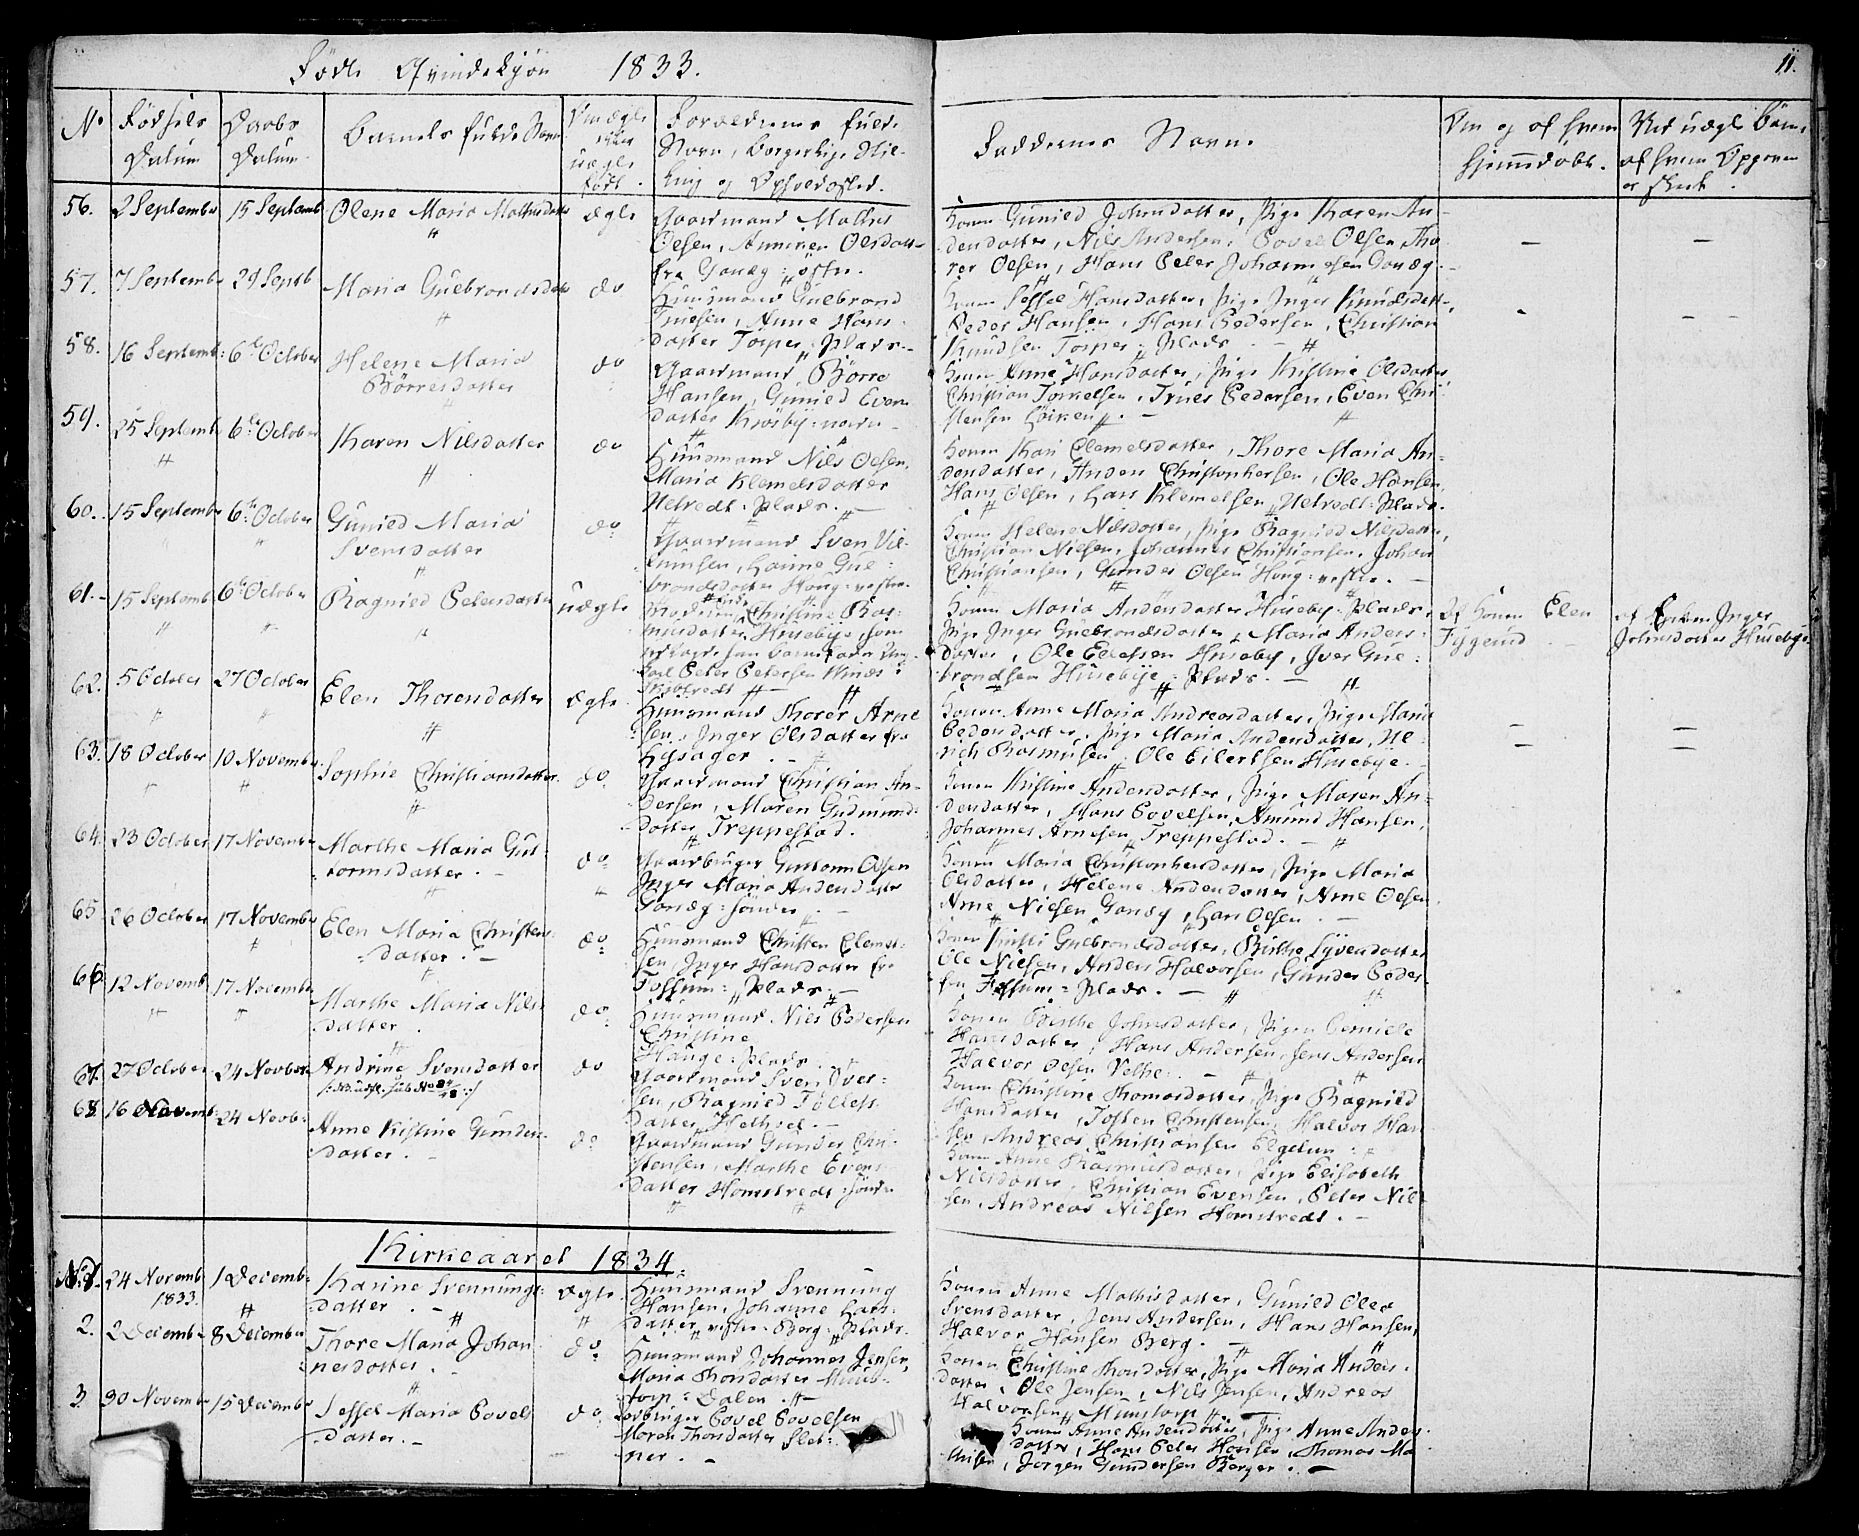 Fødte Qvindekjøn 1833.
11.
No
Fødsels Datum
Daabs Datum.
Barnets fulde Navn
Om ægte eller uægte født.
Forældrenes fulde Navn, borgerlige Stilling og Opholdssted.
Faddernes Navne.
Om og af hvem hjemmedøbt.
Ved uægte Børn, af hvem Opgaven er skeet.
56. 2 September 15 Septemb Olene Maria Mathisdatter ægte
Gaardmand Mathis
Olsen, Anniken Olsdatt
fra Gonæg: østre.
Konen Gunild Johnsdatter, Pige Karen An-
dersdatter, Nils Andersen, Povel Olsen, Tho
rer Olsen, Hans Peter Johannesen Gonæg.
57. 7 Septembr 29 Septb Maria Gulbrandsdatt do
Huusmand Gulbrand
Truesen, Anne Hans
datter Torper: Plads.
Konen Sissel Hansdatter, Pige Inger Knudsdatt,
Peder Hansen, Hans Pedersen, Christian
Knudsen Torper: Plads.
58. 16 Septemb: 6te October Helene Maria
Børresdatter do
Gaardmand Børre
Hansen, Gunild Even
datter Krosby: nordre
Konen Anne Hansdatter, Pige Kistine Olsdatter
Christian Torkelsen, Trues Pedersen, Even Chri
stensen
59. 25 Septemb 6te October Karen Nilsdatter do
Huusmand Nils Olsen,
Maria Klemetsdatter
Helvedt: Plads.
Konen Kari Clemetsdatter, Thore Maria An-
dersdatter, Anders Christophersen, Ole Hansen,
Hans Olsen, Lars Klemetsen, Helvedt: Plads.
60. 15 September 6te October Gunild Maria
Svensdatter do
Gaardmand Sven Vil-
lumsen, Hanne Gul-
brandsdatter Houg: vestre.
Konen Helene Nilsdatter, Pige Ragnild Nilsdatter,
Christian Nielsen, Johannes Christiansen, Johan
Christiansen, Gunder Olsen Houg: vestre.
61. 15 Septemb 6te October Ragnild Petersdatter uægte
Moderen Christine Ras-
musdatter Husebye, som
Carl Peter Petersen
Konen Maria Andersdatter Huseby: Plads,
Pige Inger Gulbrandsdatter, Maria Anders-
datter, Ole Edessen Huseby, Iver Gul-
brandsen Husebye: Plads.
Af Konen Elen
af Enken Inger
Johnsdatter Husebye.
62. 5 October 27 October Elen Thorersdatter ægte
Huusmand Thorer Arne
sen, Inger Olsdatter fra
Lysager.
Konen Anne Maria Andreasdatter, Pige Maria
Pedersdatter, Pige Maria Andersdatter, Ul-
rich Rasmusen, Ole Eilertsen Husebye.
63. 18 October 10 November Sophie Christiansdatter do
Gaardmand Christian An-
dersen, Maren Gudmund-
datter, Treppestad.
Konen Kistine Andersdatter, Pige Maren An-
dersdatter, Hans Povelsen, Amund Hansen,
Johannes Arnesen, Treppestad.
64. 23 October 17 November Marthe Maria Gut-
tormsdatter do
Gaardbruger Guttorm Olsen
Inger Maria Andersdatter
Gonæg: søndre.
Konen Maria Christophersdatter, Pige Maria
Olsdatter, Helene Andersdatter, Arne Olsen
Arne Nielsen Gonæg, Lars Olsen.
65. 26 October 17 November Elen Maria Christens-
datter. do
Huusmand Christen Clemet-
sen, Inger Hansdatter fra
Fossum: Plads.
Konen Kirsti Gulbrandsdatter, Birthe Syvendatter
Ole Nielsen, Anders Halvorsen, Gunder Peder
sen Fossum: Plads.
66. 12 Novemb 17 November Marthe Maria Nils-
datter. do
Huusmand Niels Pedersen
Christine
Hauge: Plads.
Konen Birthe Johnsdatter, Pigen Pernille
Hansdatter, Hans Andersen, Jens Andersen
Halvor Olsen Velhe.
67. 27 October 24 Novber Andrine Svensdatter do
Gaardmand Sven Iver-
sen, Ragnild Tollefs
datter
Konen Christine Thomasdatter, Pige Ragnild
Hansdatter, Josten Christensen, Halvor Han
sen, Andreas Christiansen Elgetun.
68. 16 Novemb: 24 Novb: Anne Kistine Gunders
datter. do
Gaardmand Gunder Chri-
stensen, Marthe Evens
datter Homstvedt: søndre
Konen Anne Rasmusdatter, Pige Elisabeth
Nilsdatter, Christian Evensen, Peter Nil
sen, Andreas Nilsen Homstvedt.
Kirkeaaret 1834.
No 1. 24 Novemb 1833. 1 Decemb: Karine Svennungs-
datter. ægte
Huusmand Svennung
Hansen, Johanne Lars-
datter vestre Berg: Plads.
Konen Anne Mathisdatter, Gunild Olea
Svensdatter, Jens Andersen, Hans Hansen,
Halvor Hansen Berg.
2. 2 December 8 December Thore Maria Johan
nesdatter. do
Huusmand Johannes Jensen,
Maria Thorsdatter
Dalen.
Konen Christine Thorsdatter, Pige Maria Anders-
datter, Ole Jensen, Nils Jensen, Andreas
Halvorsen,
3. 30 November 15 December Sessel Maria Povels
datter. do
Povel Povelsen
Maren Thorsdatter Slet-
ner.
Konen Anne Andersdatter, Pige Anne Anders-
datter, Hans Peter Hansen, Thomas Ma
thisen, Jørgen Gundersen Borger.